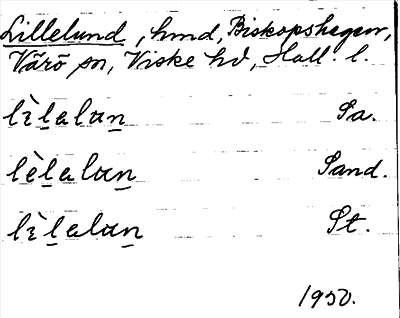 Lillelund, hmd, Biskopshagen,
Värö sn, Viske hd, Hall. l.
lìlalun Sa.
lèlalun Sand.
lìlalun St.
1950.